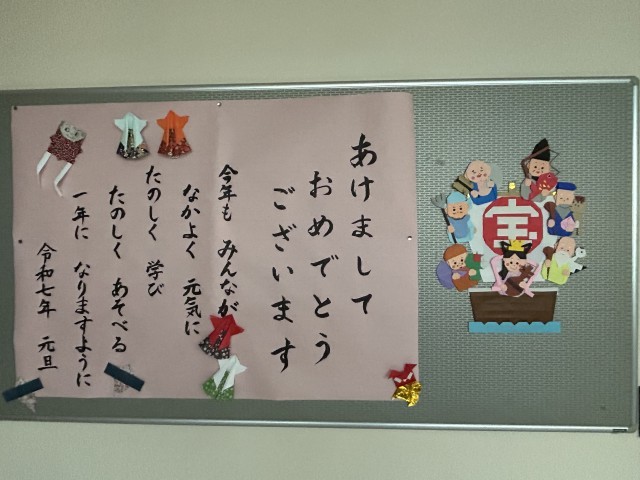 あけまして
おめでとう
ございます
今年も みんなが
なかよく 元気に
たのしく 学び
たのしく あそべる
一年に なりますように
令和七年 元旦
宝